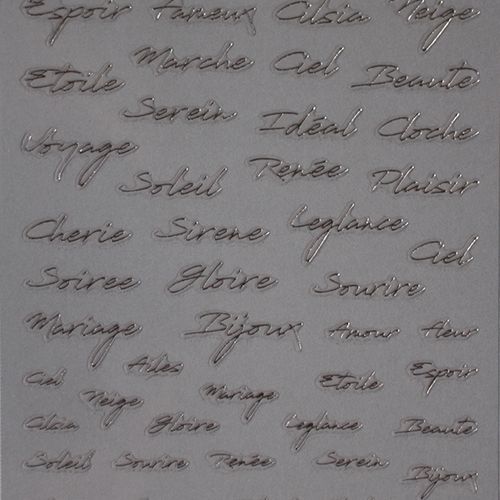 Espoir Fameux Cilsia Neige
Marche Ciel
Etoile Beautè
Serein Idéal Cloche
Voyage Renée
Soleil Plaisir
Cherie Sirene Leglance
Ciel
Soiree Gloire Sourire
Mariage Bijoux Amour fleur
Ciel Ailes Etoile Espoir
Neige Mariage
Cilsia Gloire Leglance Beautè
Soleil Sourire Renée Serein
Bijoux